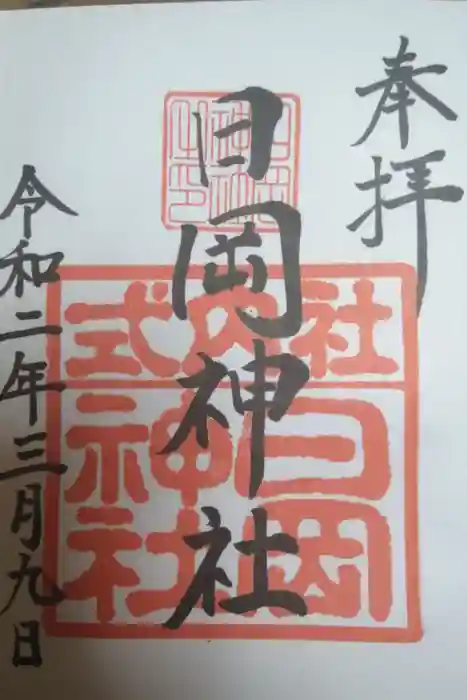 奉拝
日岡神社
令和二年三月九日
式内社
日岡神社